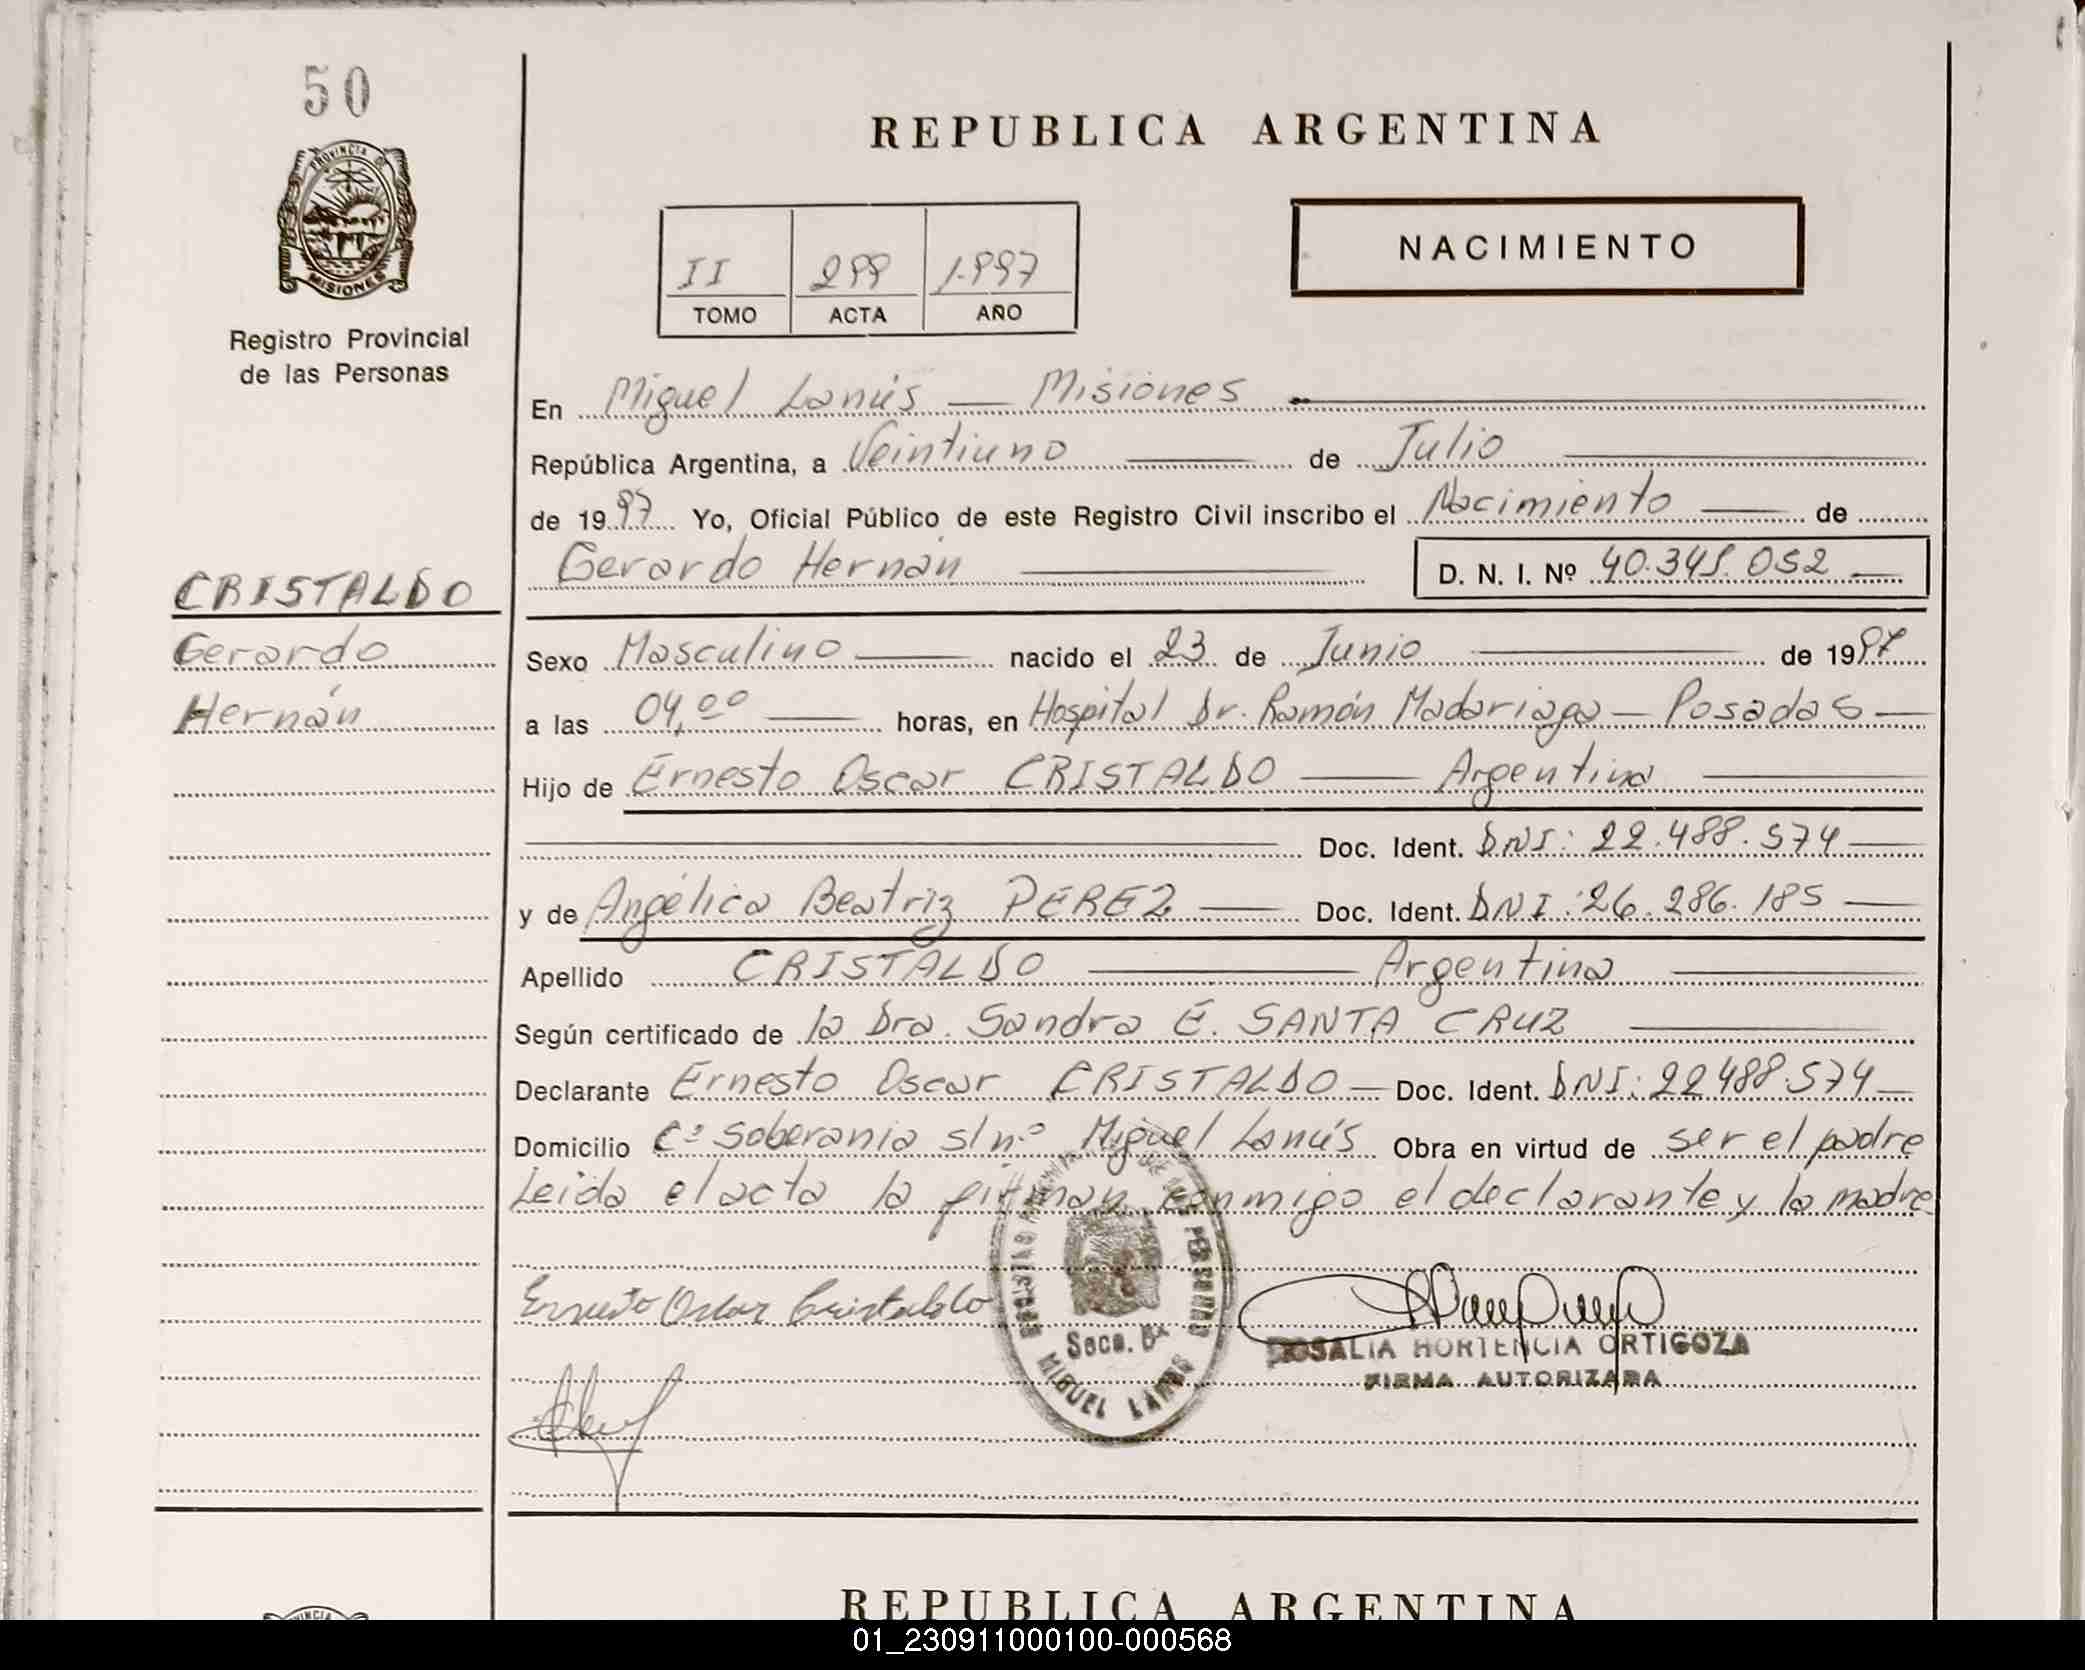 50
REPUBLICA ARGENTINA
PROVINCIA DE
MISIONES
Registro Provincial
de las Personas
NACIMIENTO
II 299 1.997
TOMO ACTA AÑO
En Miguel Lanús — Misiones
República Argentina, a Veintiuno de Julio
de 1997 Yo, Oficial Público de este Registro Civil inscribo el Nacimiento de
Gerardo Hernán D. N. I. Nº 40.345.052
CRISTALDO
Gerardo
Hernán
Sexo Masculino nacido el 23 de Junio de 1997
a las 04,00 horas, en Hospital Dr. Ramón Madariaga — Posadas —
Hijo de Ernesto Oscar CRISTALDO — Argentina
Doc. Ident. DNI: 22.488.574
y de Angélica Beatriz PEREZ — Doc. Ident. DNI: 26.286.185
Apellido CRISTALDO — Argentina
Según certificado de la Dra. Sandra E. SANTA CRUZ
Declarante Ernesto Oscar CRISTALDO — Doc. Ident. DNI: 22488.574
Domicilio Cº Soberania s/nº Miguel Lanús Obra en virtud de ser el padre
Leida el acta la firman conmigo el declarante y la madre
Ernesto Oscar Cristaldo
Secc. 6ª
MIGUEL LANUS
ROSALIA HORTENCIA ORTIGOZA
FIRMA AUTORIZADA
REPUBLICA ARGENTINA
01_230911000100-000568